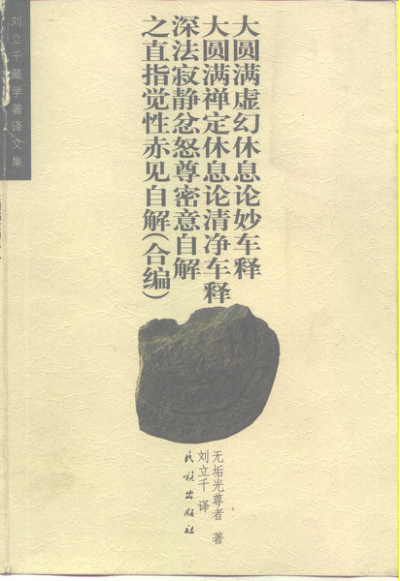 刘立千藏学著译文集
大圆满虚幻休息论妙车释
大圆满禅定休息论清净车释
深法寂静忿怒尊密意自解
之直指觉性赤见自解（合编）
无垢光尊者 著
刘立千 译
民族出版社